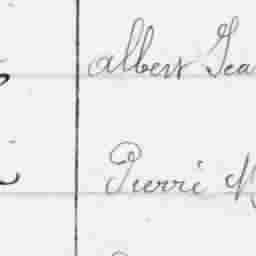 Albert Jea
Pierre